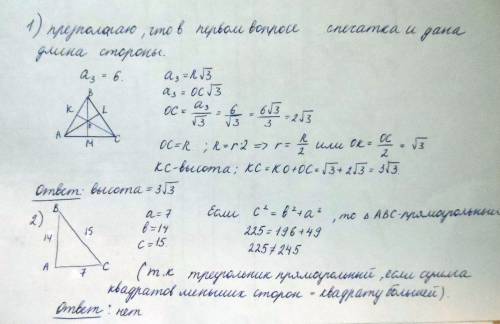 1) предполагаю, что в первом вопросе опечатка и дана
длина стороны.
a₃ = 6.
a₃ = R√3
a₃ = OC√3
OC = a₃/√3 = 6/√3 = 6√3/3 = 2√3
OC = R ; R = r2 => r = R/2 или OK = OC/2 = √3
KC - высота; KC = KO + OC = √3 + 2√3 = 3√3.
B
K L
A M C
Ответ: высота = 3√3
2) B
14 15
A 7 C
a = 7
b = 14
c = 15.
Если c² = b² + a², то △ABC - прямоугольный
225 = 196 + 49
225 ≠ 245
(т.к треугольник прямоугольный, если сумма
квадратов меньших сторон = квадрату большей).
Ответ: нет